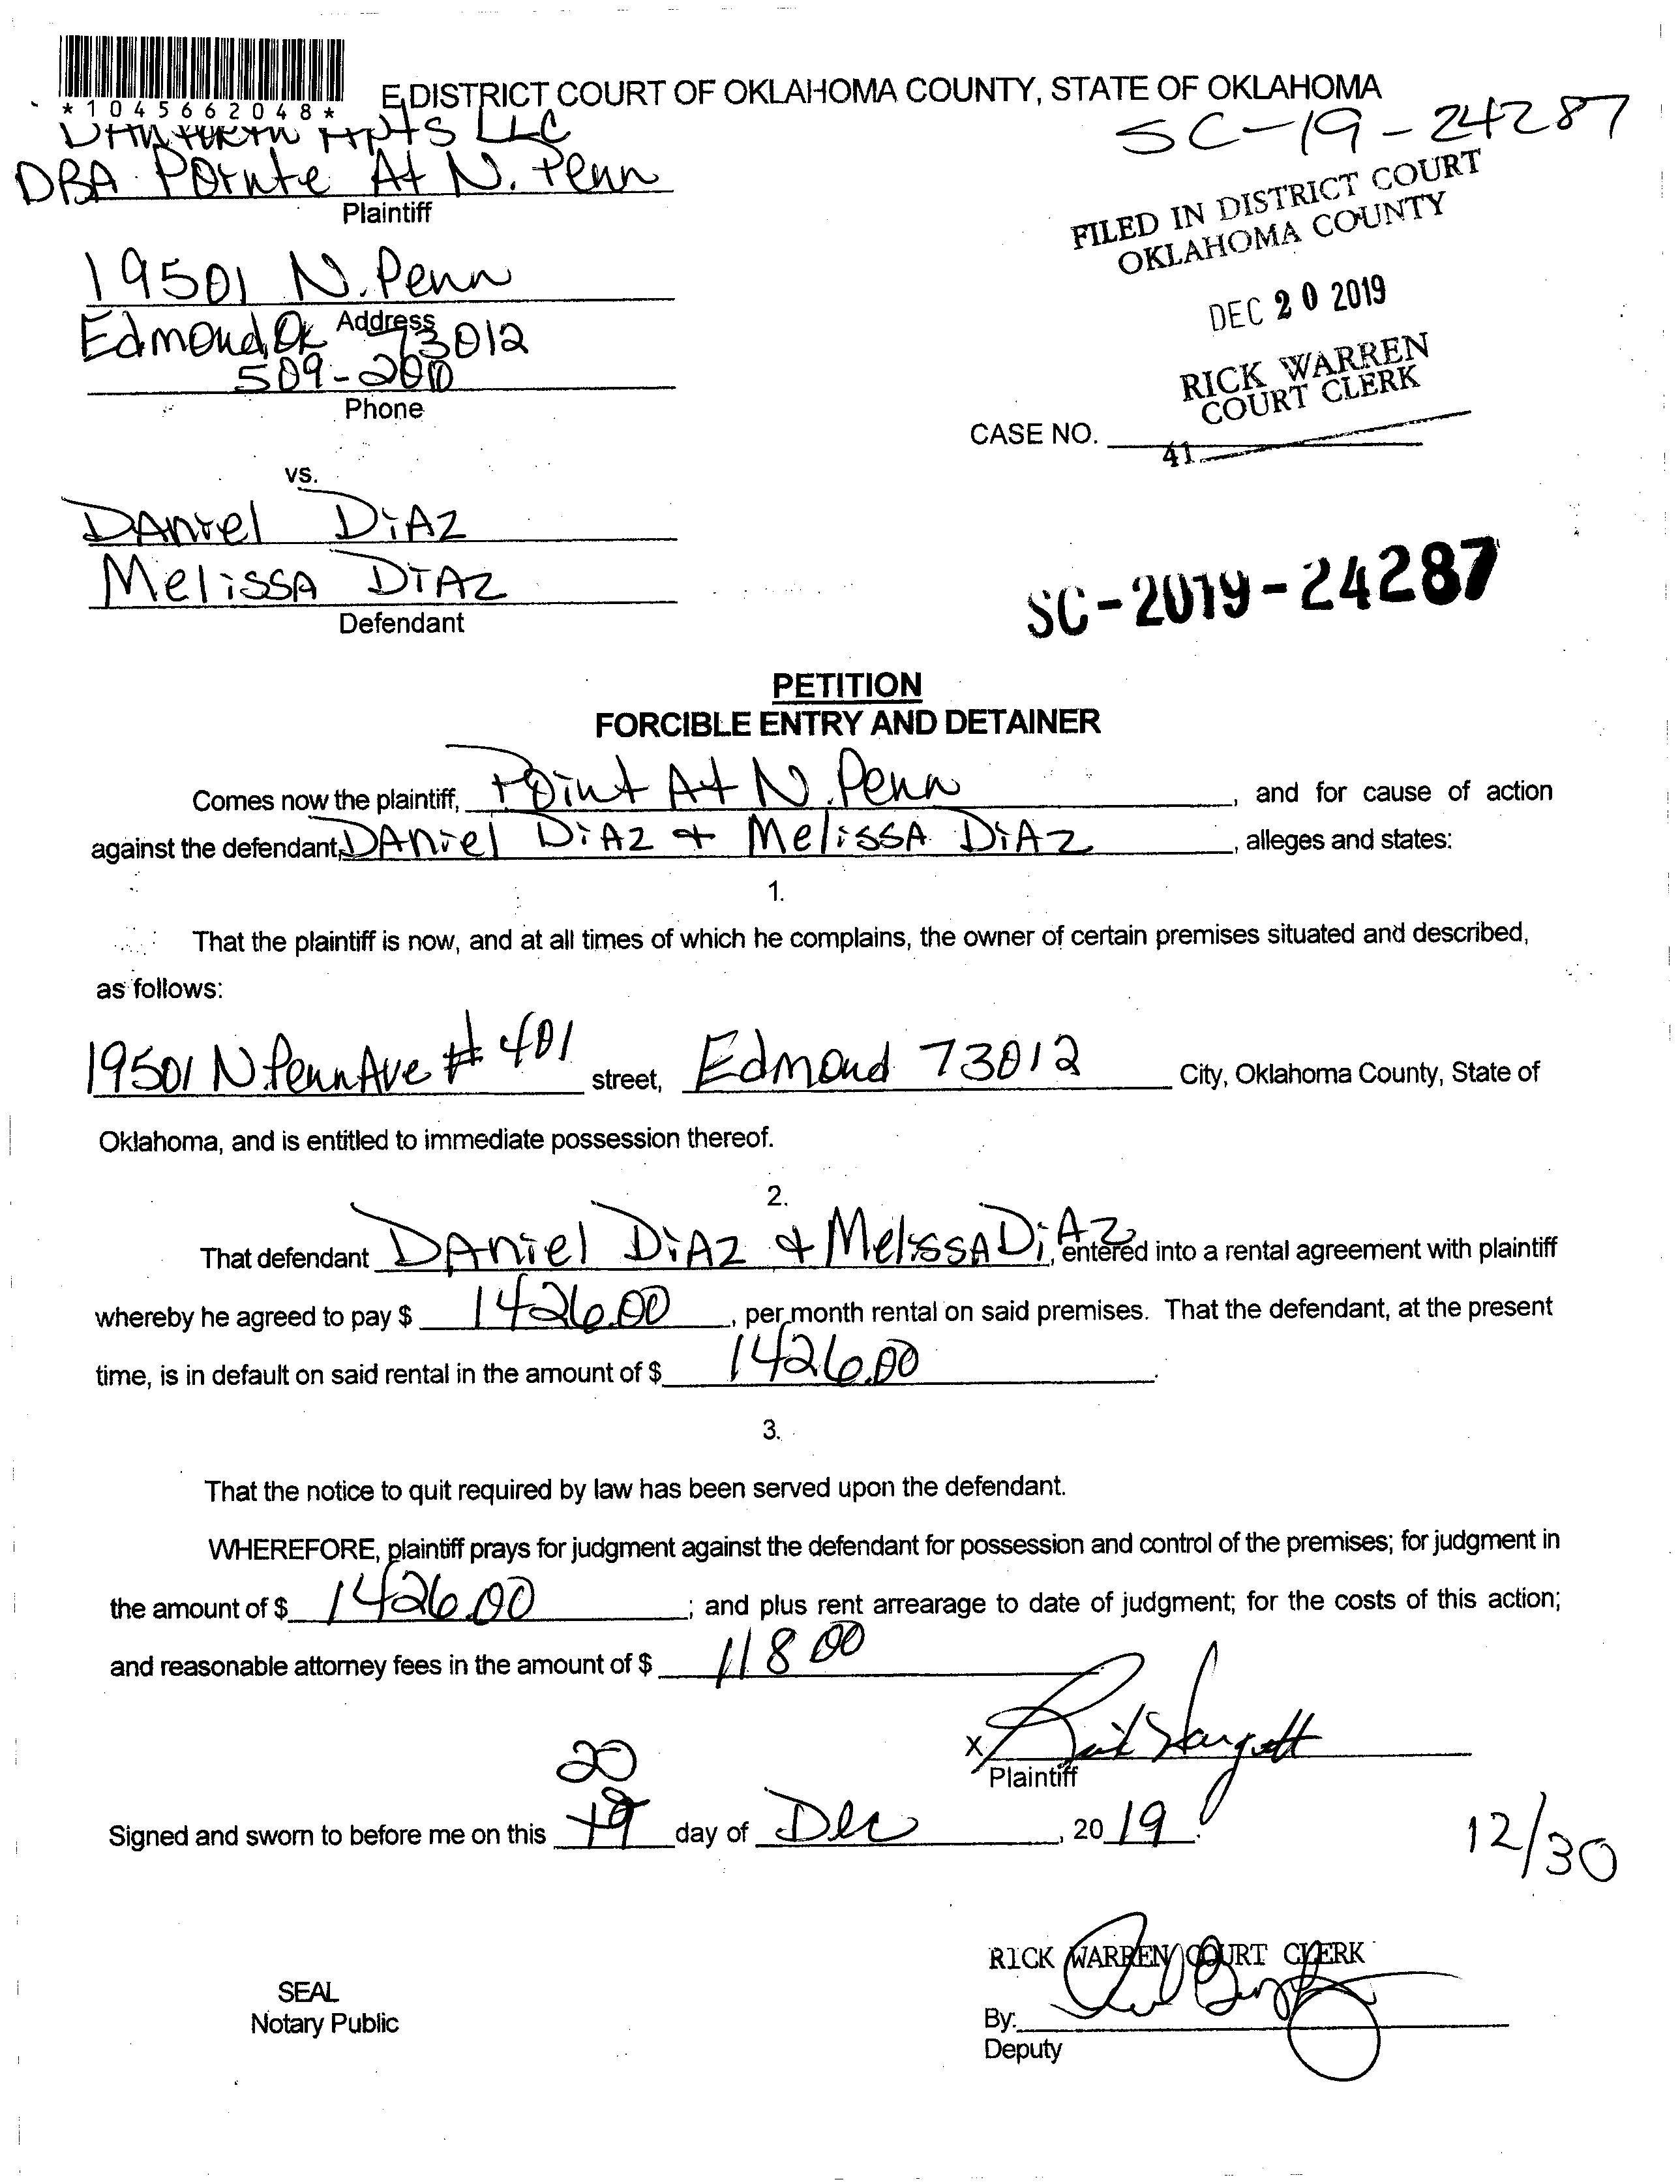 *1045662048*
E DISTRICT COURT OF OKLAHOMA COUNTY, STATE OF OKLAHOMA
SC-19-24287
Danforth Apts LLC
DBA Pointe At N. Penn
Plaintiff
FILED IN DISTRICT COURT
OKLAHOMA COUNTY
19501 N. Penn
Address
Edmond, Ok 73012
DEC 20 2019
509-2010
Phone
RICK WARREN
COURT CLERK
CASE NO.
41
vs.
DANiel DiAZ
MeliSSA DiAZ
Defendant
SC-2019-24287
PETITION
FORCIBLE ENTRY AND DETAINER
Comes now the plaintiff, Point At N. Penn, and for cause of action
against the defendant, DANiel DiAZ + MeliSSA DiAZ, alleges and states:
1.
That the plaintiff is now, and at all times of which he complains, the owner of certain premises situated and described,
as follows:
19501 N Penn Ave # 401 street, Edmond 73012 City, Oklahoma County, State of
Oklahoma, and is entitled to immediate possession thereof.
2.
That defendant DANiel DiAZ + MelissA DiAZ, entered into a rental agreement with plaintiff
whereby he agreed to pay $ 1426.00, per month rental on said premises. That the defendant, at the present
time, is in default on said rental in the amount of $ 1426.00.
3.
That the notice to quit required by law has been served upon the defendant.
WHEREFORE, plaintiff prays for judgment against the defendant for possession and control of the premises; for judgment in
the amount of $ 1426.00; and plus rent arrearage to date of judgment; for the costs of this action;
and reasonable attorney fees in the amount of $ 118 00
X
Plaintiff
20
Signed and sworn to before me on this 19 day of Dec, 2019.
12/30
RICK WARREN COURT CLERK
SEAL
Notary Public
By:
Deputy